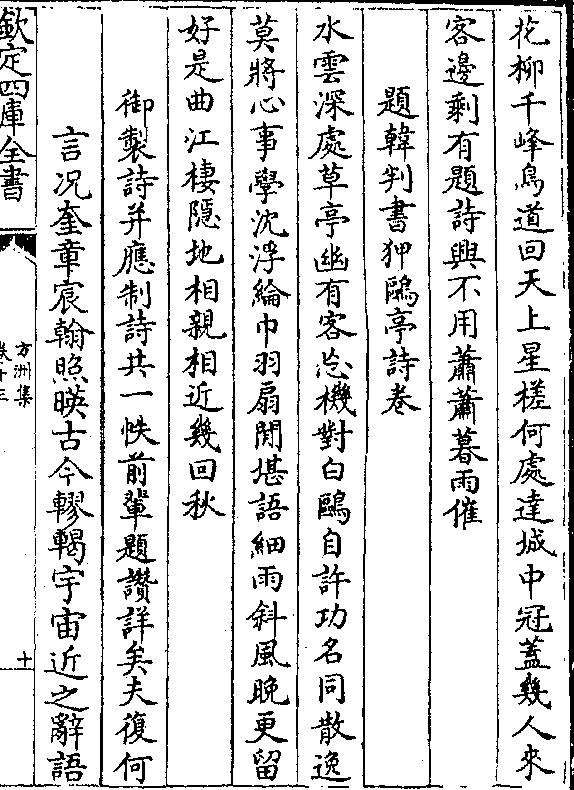 花柳千峰鳥道回天上星槎何處達城中冠蓋幾人來
客邊剩有題詩興不用蕭蕭暮雨催
題韓判書狎鷗亭詩卷
水雲深處草亭幽有客忘機對白鷗自許功名同散逸
莫將心事學沈浮綸巾羽扇閒堪語細雨斜風晚更留
好是曲江棲隱地相親相近幾回秋
御製詩并應制詩共一帙前輩題讚詳矣夫復何
言况奎章宸翰照暎古今轇轕宇宙近之辭語
欽定四庫全書
方洲集
卷十三
十